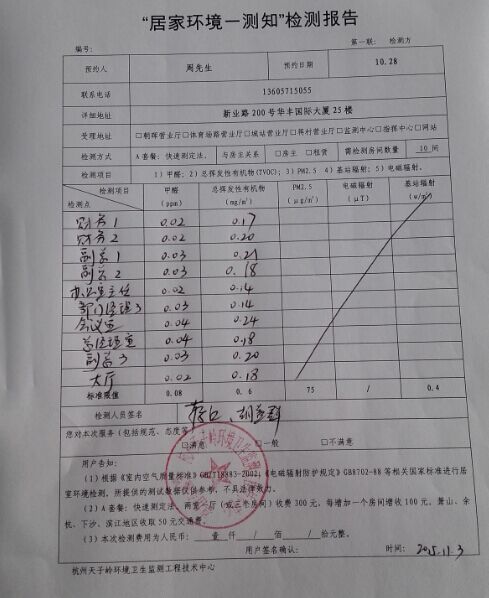 “居家环境一测知”检测报告
编号: 第一联: 检测方
预约人 周先生 预约日期 10.28
联系电话 13605715055
详细地址 新业路200号华丰国际大厦25楼
受理地址 □朝晖营业厅□体育场路营业厅□城站营业厅□蒋村营业厅□监测中心□指挥中心□网站
检测方式 A套餐: 快速测定法, 与房主关系 □房主 □租赁 需检测房间数量 10间
检测项目 1)甲醛; 2)总挥发性有机物(TVOC); 3)PM2.5 4)基站辐射; 5)电磁辐射.
检测项目 甲醛 总挥发性有机物 PM2.5 电磁辐射 基站辐射
检测点 (ppm) (mg/m³) (μg/m³) (μT)
财务1 0.02 0.17
财务2 0.02 0.20
副总1 0.03 0.21
副总2 0.03 0.18
办公室主任 0.02 0.14
部门经理3 0.03 0.14
会议室 0.04 0.24
总经理室 0.04 0.18
副总3 0.03 0.20
大厅 0.02 0.18
标准限值 0.08 0.6 75 / 0.4
检测人员签名
您对本次服务(包括规范、态度等
□满意 □一般 □不满意
用户告知:
(1)根据《室内空气质量标准》GB/T18883-2002;《电磁辐射防护规定》GB8702-88等相关国家标准进行居
室环境检测, 所提供的测试数据仅供参考, 不具法律效力.
(2)A套餐: 快速测定法, 两室一厅(或三个房间)收费300元, 每增加一个房间增收100元, 萧山、余
杭、下沙、滨江地区收取50元交通费.
(3)本次检测费用为人民币: 壹仟/佰/拾元整.
用户签名确认: 时间: 2015.11.3
杭州天子岭环境卫生监测工程技术中心